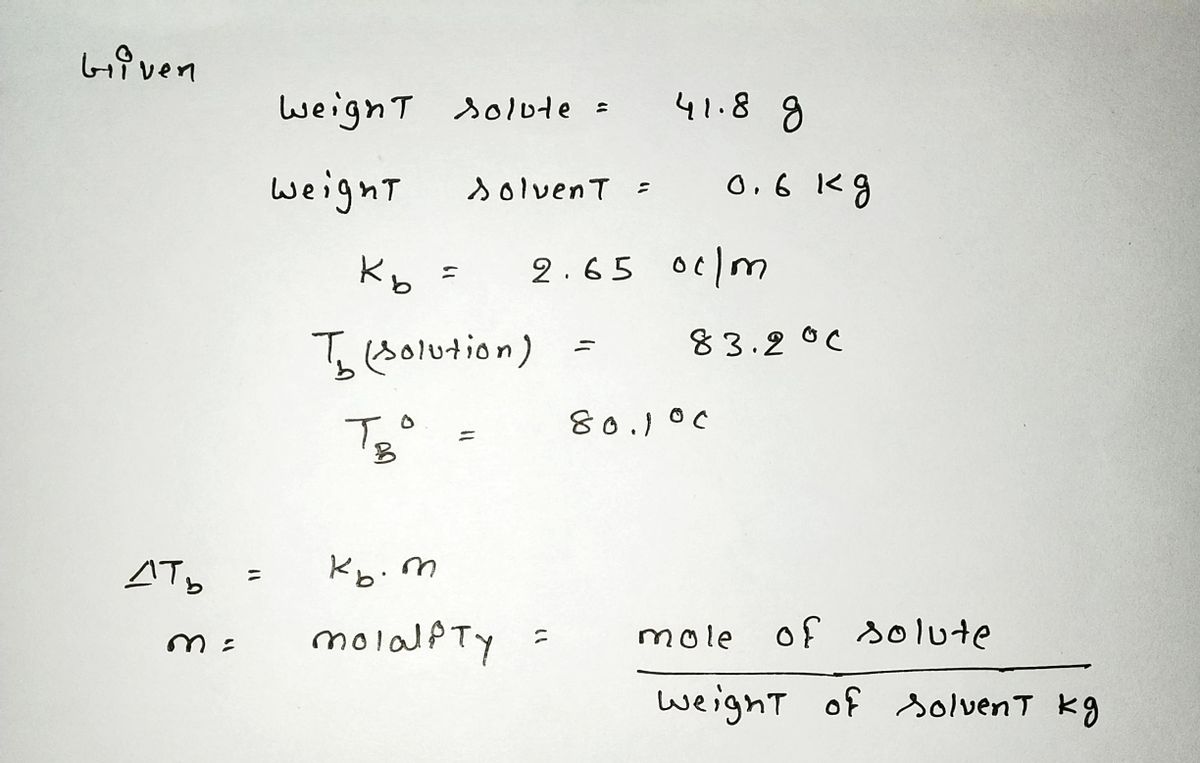 Given
Weight solute = 41.8 g
Weight solvent = 0.6 Kg
Kb = 2.65 oc/m
Tb (solution) = 83.2 °C
TB° = 80.1 °C
ΔTb = Kb.m
m = molality = mole of solute / Weight of solvent kg